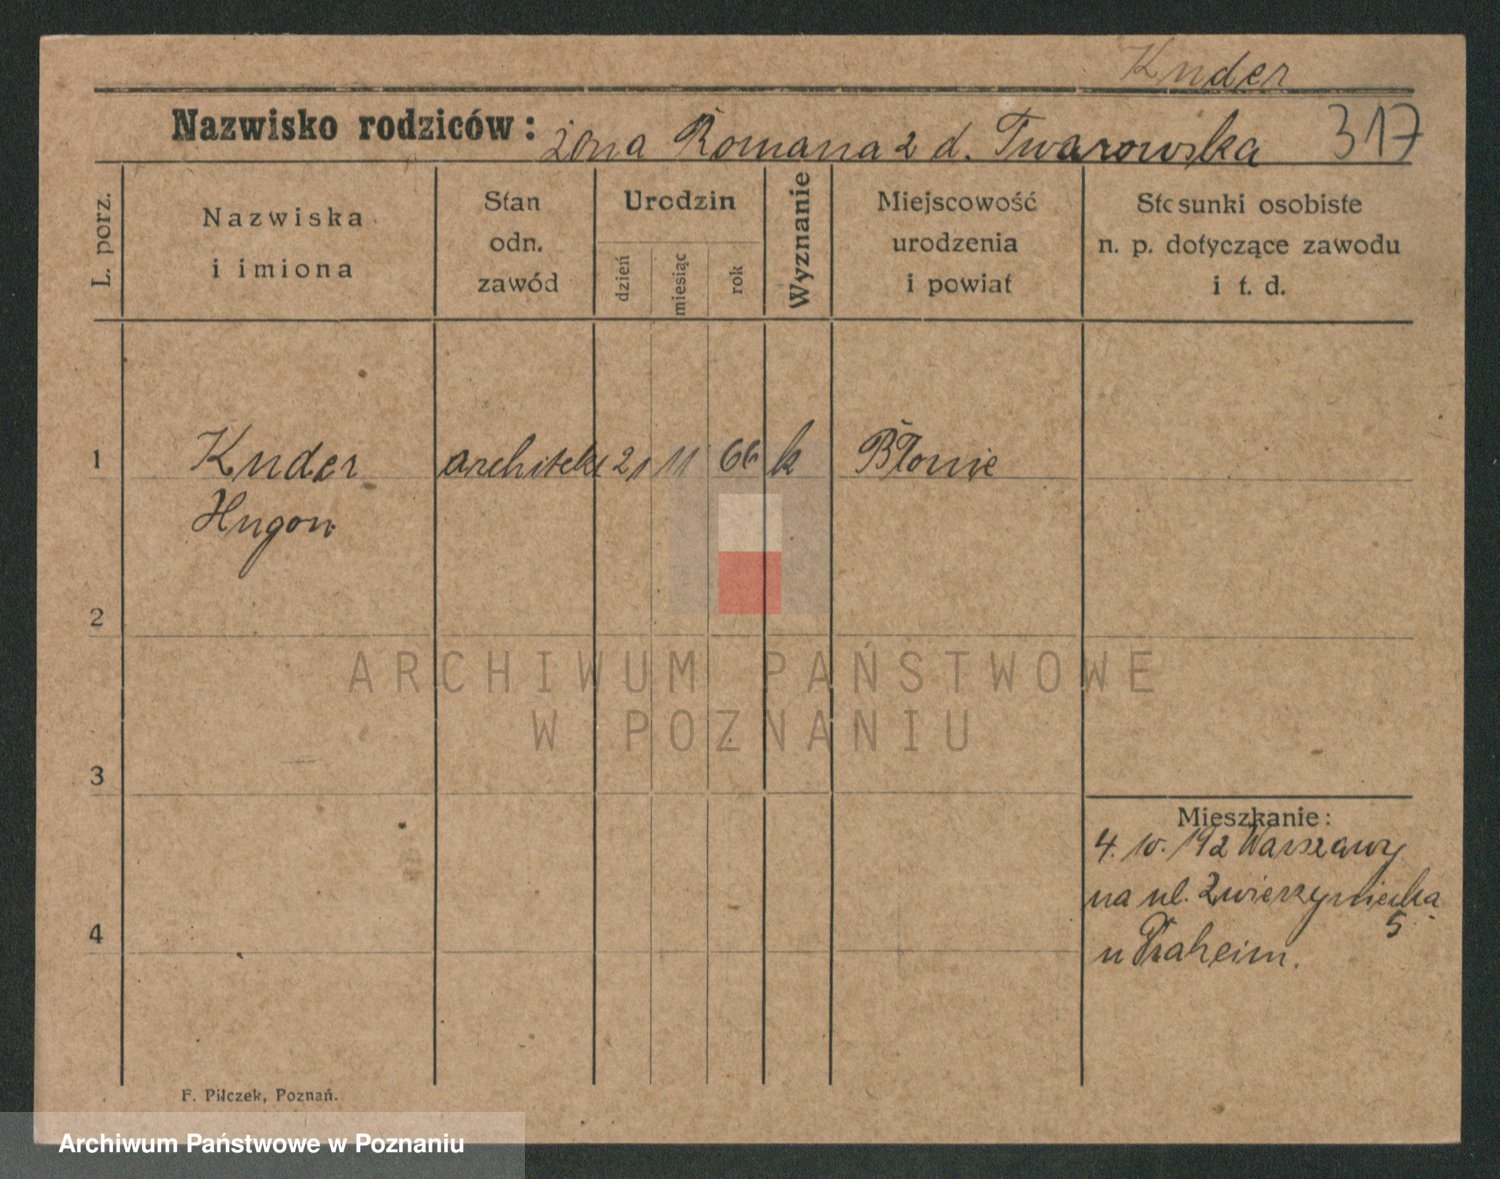 Kuder
Nazwisko rodziców: żona Romana z d. Twarowska 317
L. porz.
Nazwiska
i imiona
Stan
odn.
zawód
Urodzin
dzień
miesiąc
rok
Wyznanie
Miejscowość
urodzenia
i powiat
Stosunki osobiste
n. p. dotyczące zawodu
i t. d.
1 Kuder architekt 21 11 66 k Błonie
Hugon
2
3
4
Mieszkanie:
Warszawy
na ul. Zwierzyniecka
5
u
F. Pilczek, Poznań.
ARCHIWUM PAŃSTWOWE
W POZNANIU
Archiwum Państwowe w Poznaniu